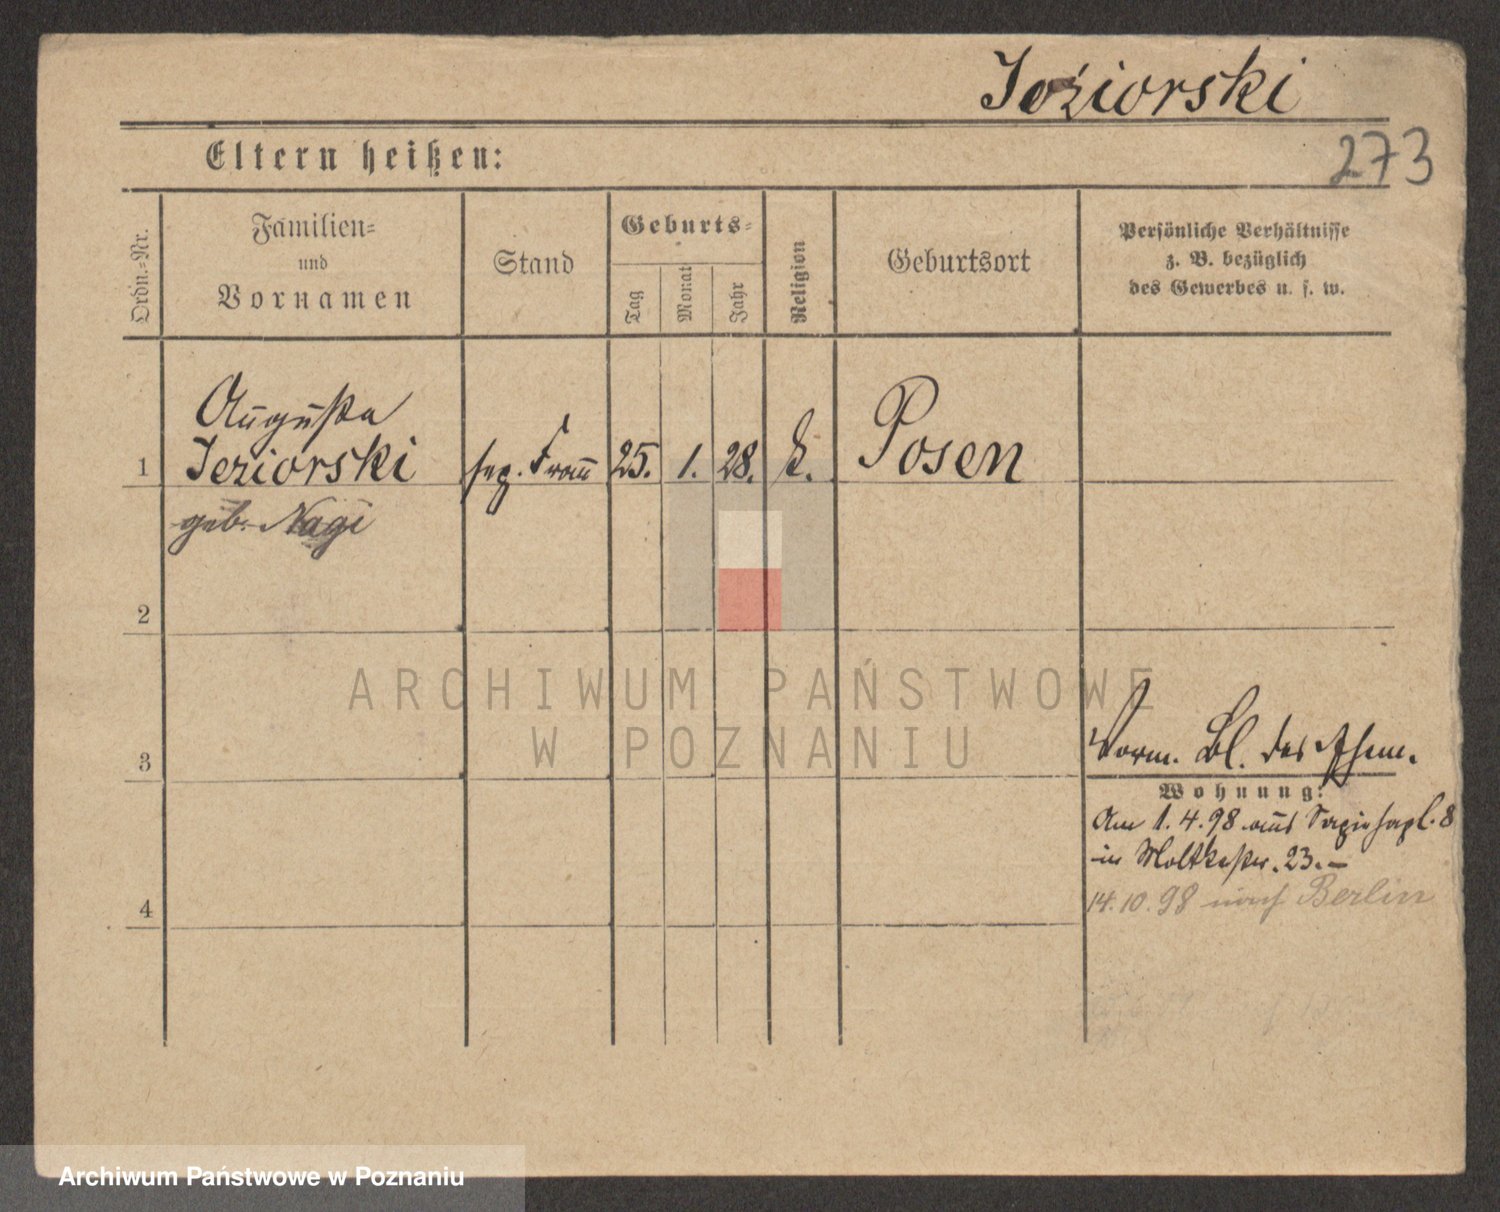 Jeziorski
273
Eltern heißen:
Ordn.-Nr.
Familien-
und
Vornamen
Stand
Geburts-
Tag
Monat
Jahr
Religion
Geburtsort
Persönliche Verhältnisse
z. B. bezüglich
des Gewerbes u. s. w.
1
Augusta
Jeziorski
geb. Nagi
sep. Frau
25.
1.
28.
k.
Posen
2
3
4
Vorm. Bl. des Ehem.
Wohnung:
Am 1.4.98 aus Sapiehapl. 8
in Moltkestr. 23.-
14.10.98 nach Berlin
ARCHIWUM PAŃSTWOWE
W POZNANIU
Archiwum Państwowe w Poznaniu